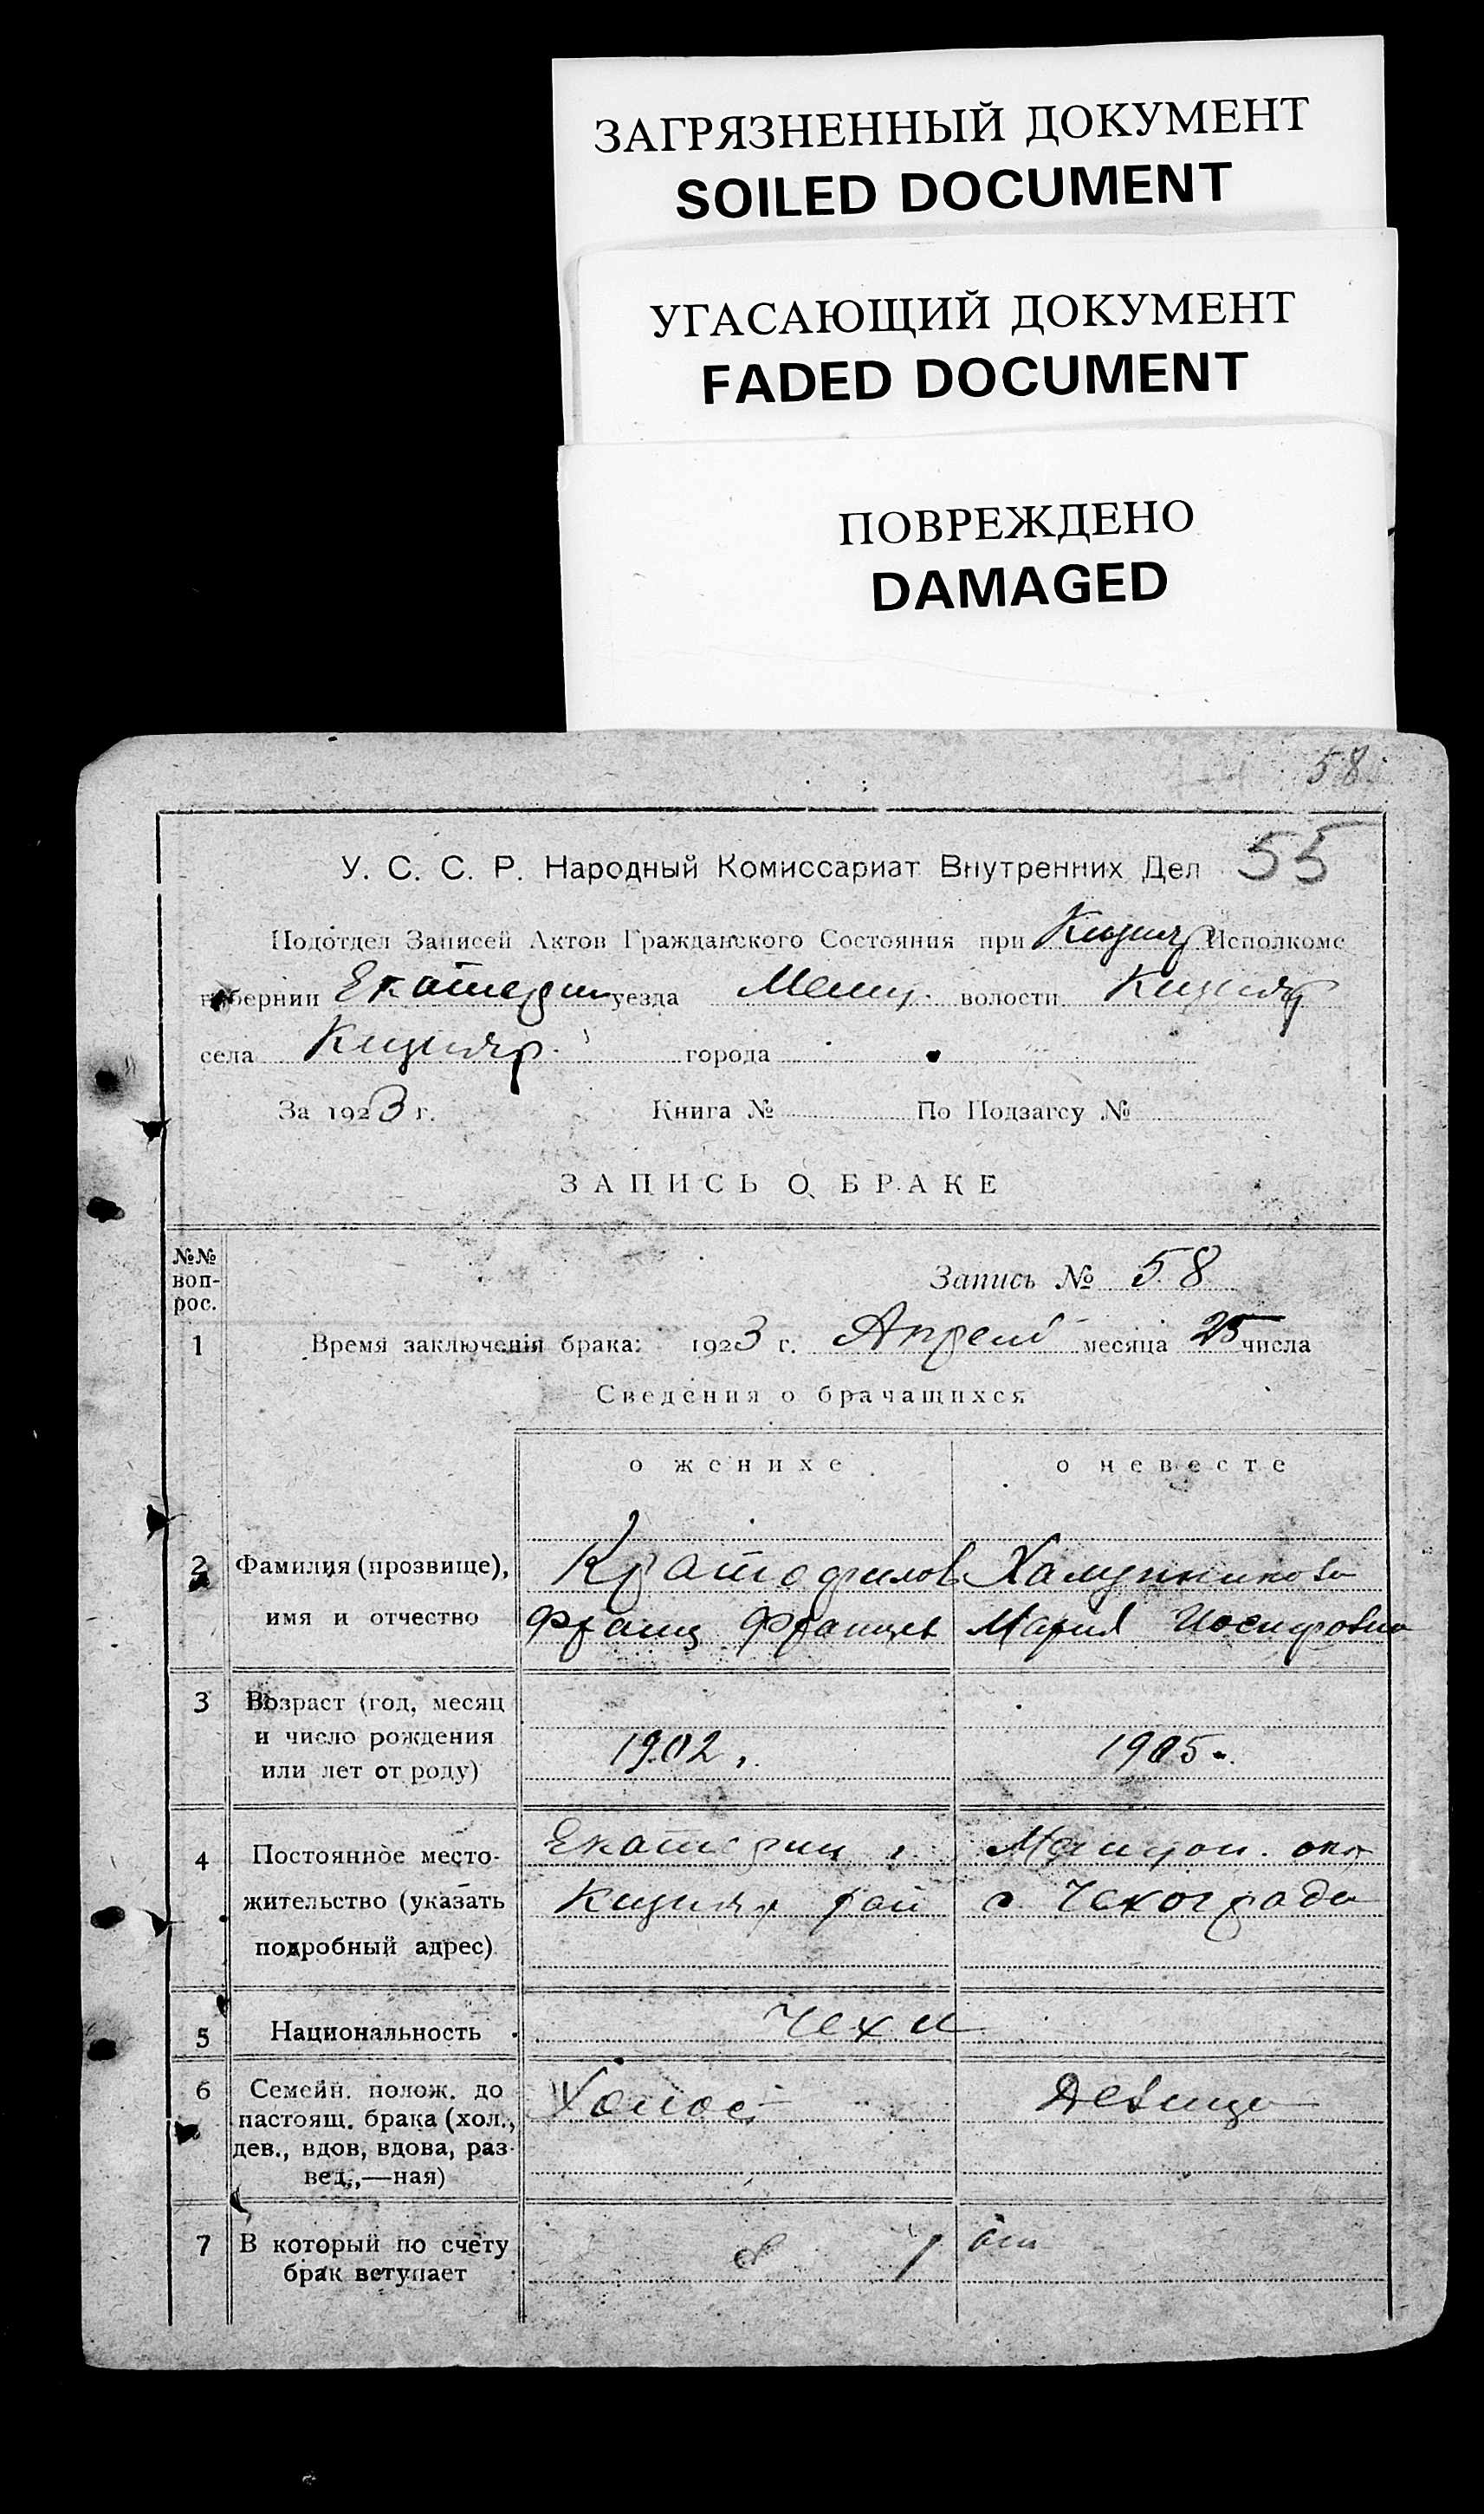 ЗАГРЯЗНЕННЫЙ ДОКУМЕНТ
SOILED DOCUMENT
УГАСАЮЩИЙ ДОКУМЕНТ
FADED DOCUMENT
ПОВРЕЖДЕНО
DAMAGED
58
У. С. С. Р. Народный Комиссариат Внутренних Дел 55
Подотдел Записей Актов Гражданского Состояния при Кизияр Исполкоме
губернии Екатерин уезда Мелит. волости Кизияр
села Кизияр. города
За 1923 г. Книга № По Подзагсу №
ЗАПИСЬ О БРАКЕ
№№ воп-рос.
Запись № 58
1 Время заключенія брака: 1923 г. Апрель месяца 25 числа
Сведения о брачащихся
о женихе о невесте
2 Фамилия (прозвище), Кратофилов
имя и отчество Франц Францев Мария Иосифовна
3 Возраст (год, месяц
и число рождения 1902. 1905.
или лет от роду)
4 Постоянное место- Екатерин
жительство (указать Кизияр рай с. Чехограда
подробный адрес)
5 Национальность Чехи
6 Семейн. полож. до Холост Девица
настоящ. брака (хол.,
дев., вдов, вдова, раз-
вед.,—ная)
7 В который по счету 1
брак вступает